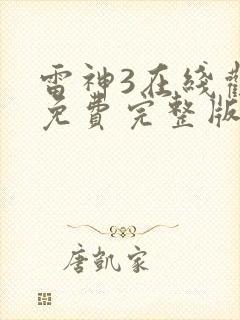 雷神3在綫觀
免費完整版
唐凱家